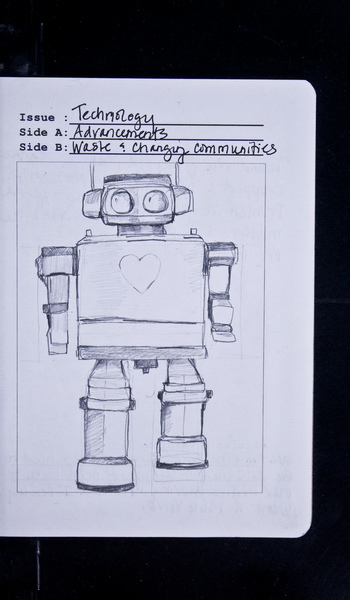 Issue : Technology
Side A: Advancements
Side B: Waste & changing communities